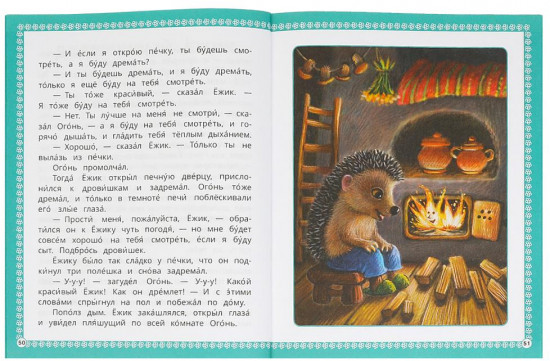 — И е́сли я откро́ю пе́чку, ты бу́дешь смо-
тре́ть, а я бу́ду дрема́ть?
— И ты бу́дешь дрема́ть, и я бу́ду дрема́ть,
то́лько я ещё бу́ду на тебя́ смотре́ть.
— Ты то́же краси́вый, — сказа́л Ёжик. —
Я то́же бу́ду на тебя́ смотре́ть.
— Нет. Ты лу́чше на меня́ не смотри́, — ска-
за́л Ого́нь, — а я бу́ду на тебя́ смотре́ть, и го-
рячо́ дыша́ть, и гла́дить тебя́ тёплым дыха́нием.
— Хорошо́, — сказа́л Ёжик. — То́лько ты не
вылаза́ь из пе́чки.
Ого́нь промолча́л.
Тогда́ Ёжик откры́л печну́ю две́рцу, присло-
ни́лся к дрови́шкам и задрема́л. Ого́нь то́же
дрема́л, и то́лько в темноте́ печи́ поблёскивали
его́ злы́е глаза́.
— Прости́ меня́, пожа́луйста, Ёжик, — обра-
ти́лся он к Ёжику чуть пого́дя, — но мне бу́дет
совсе́м хорошо́ на тебя́ смотре́ть, е́сли я бу́ду
сыт. Подбро́сь дрови́шек.
Ёжику бы́ло так сла́дко у пе́чки, что он под-
ки́нул три поле́шка и сно́ва задрема́л.
— У-у-у! — загуде́л Ого́нь. — У-у-у! Како́й
краси́вый Ёжик! Как он дре́млет! — И с э́тими
слова́ми спры́гнул на пол и побежа́л по до́му.
Попо́лз дым. Ёжик зака́шлялся, откры́л глаза́
и уви́дел пля́шущий по всей ко́мнате Ого́нь.
50
51